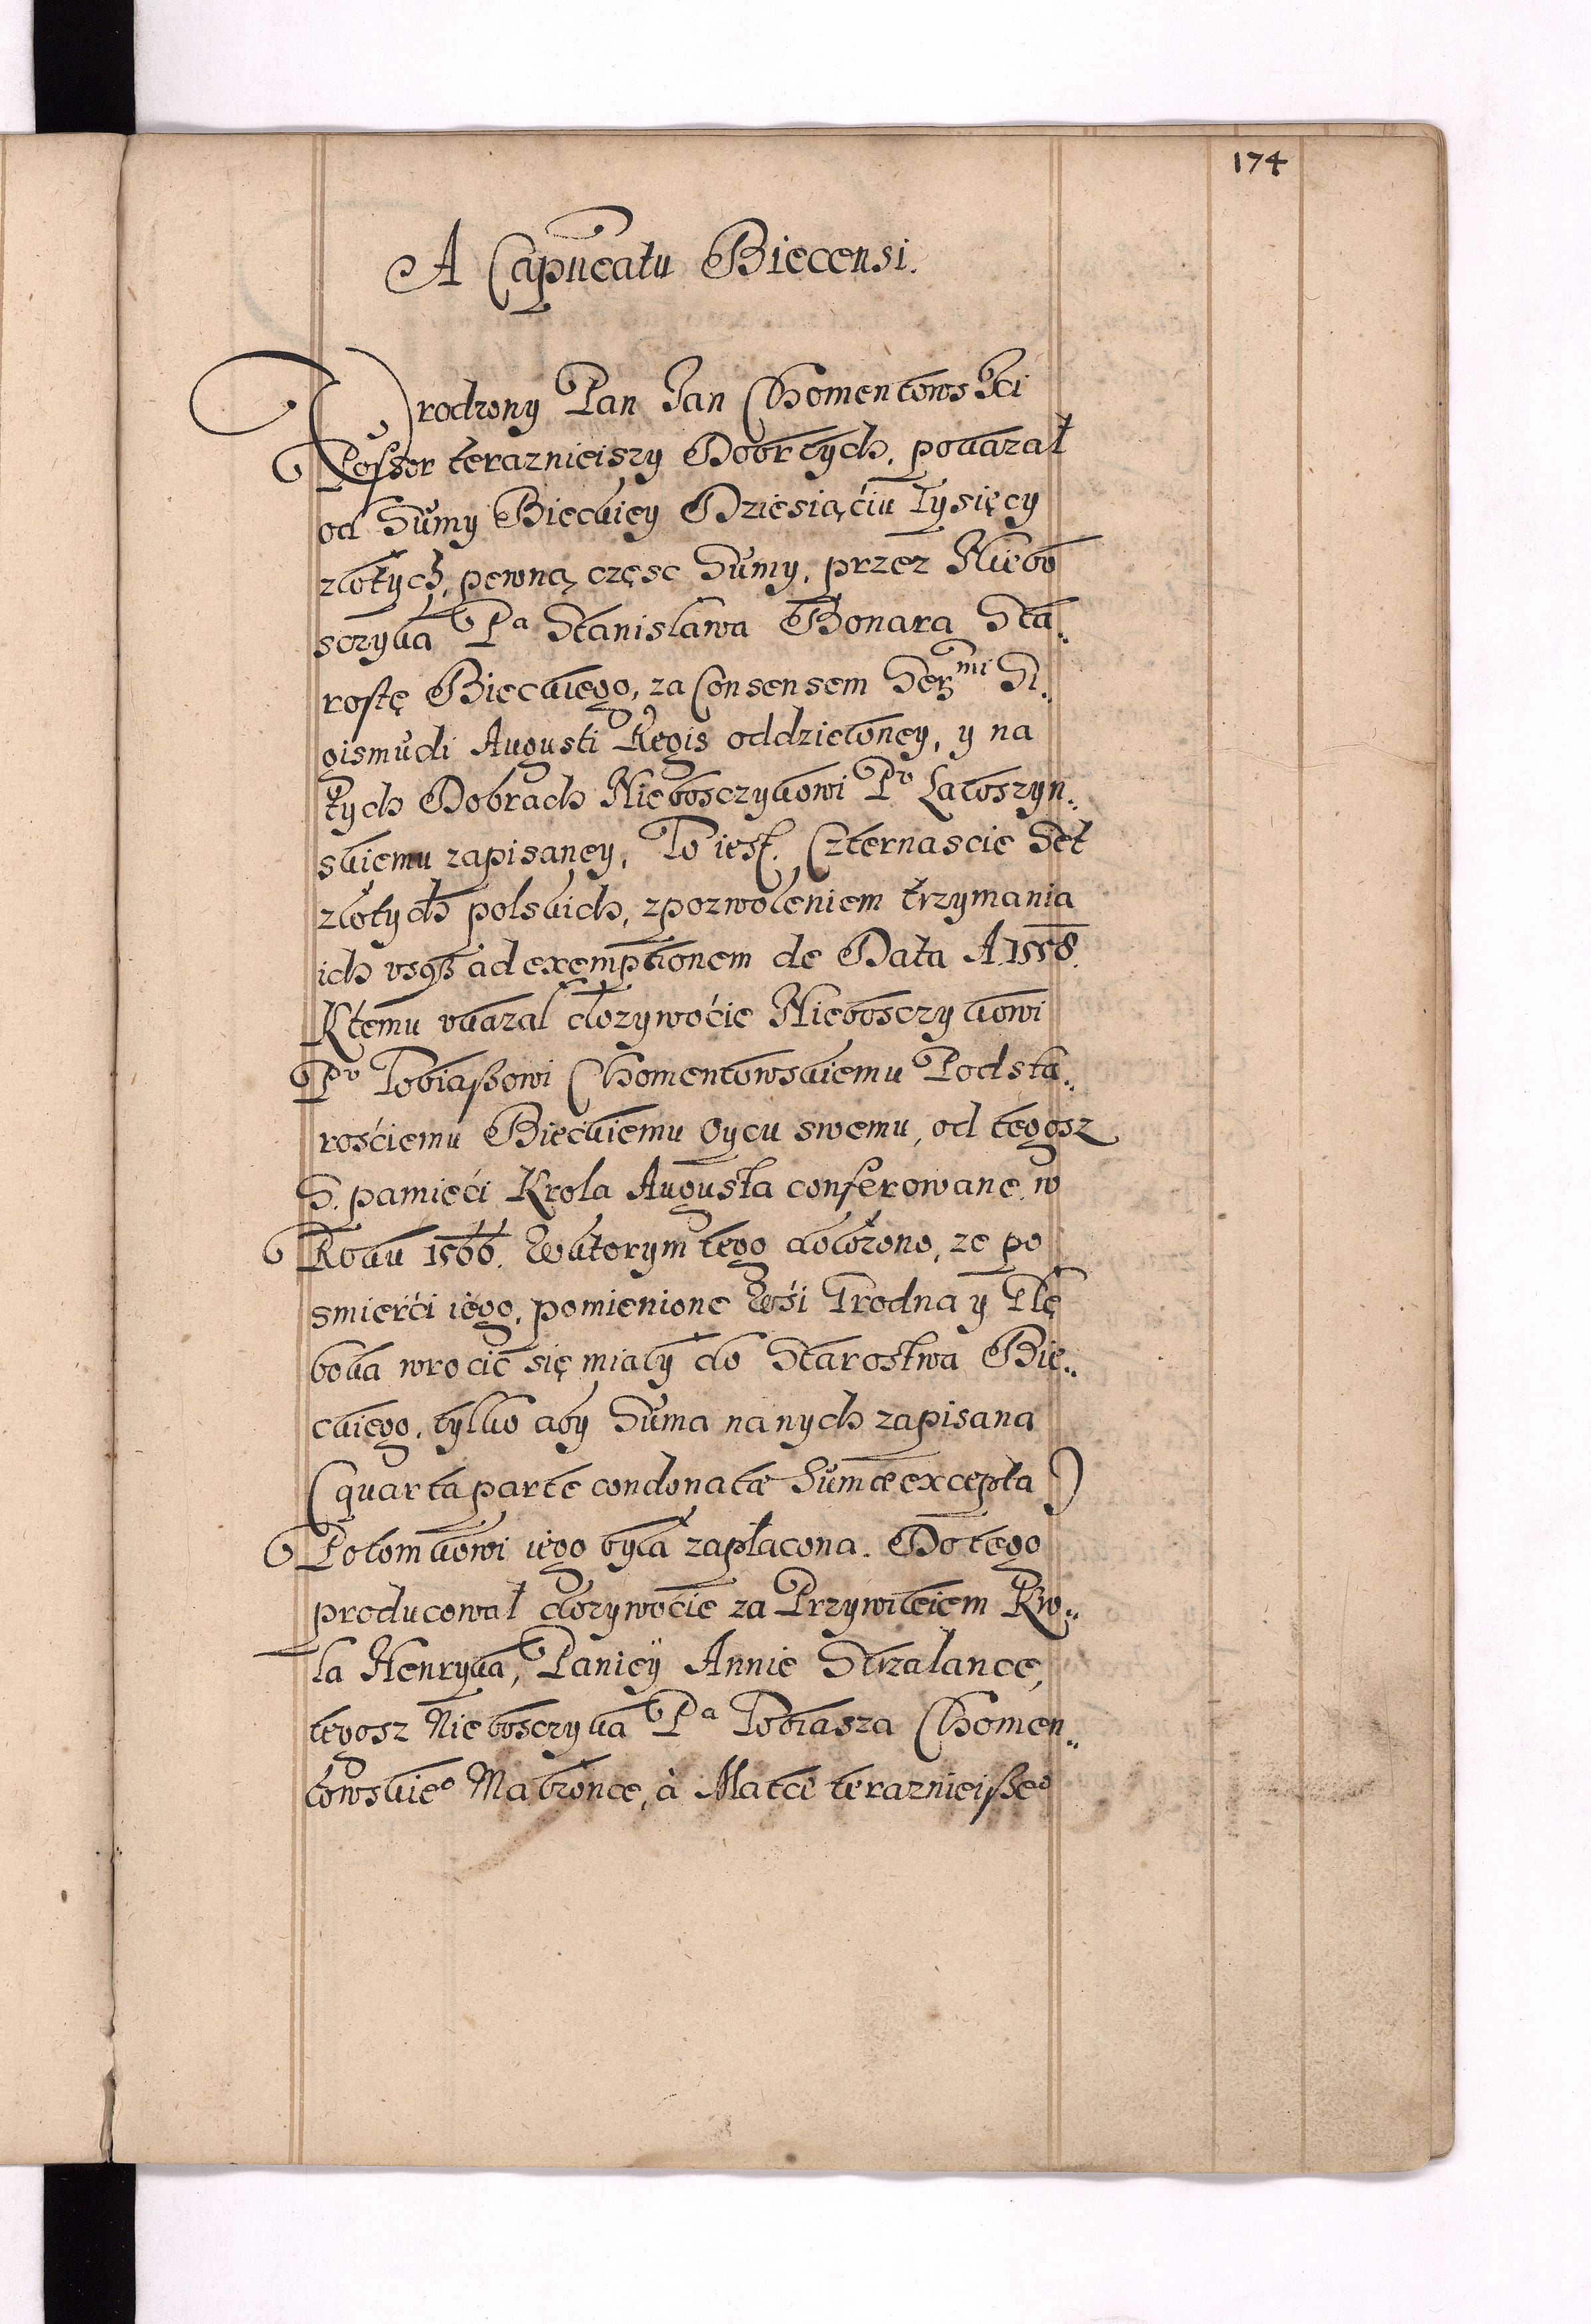 174
A Capneatu Biecensi.
Vrodzony Pan Jan Chomentowski
Possor teraznieiszy Dobr tych, pokazał
od Sumy Bieckiey Dziesiąćiu Tysięcy
złotych, pewną częsc Sumy, przez Niebo
sczyka Pa Stanisława Bonara Sta„
rostę Bieckiego, za Consensem Sermi Si„
gismudi Augusti Regis oddzieloney, y na
tych Dobrach Nieboszczykowi Pu Latoszyn„
skiemu zapisaney, To iest. Czternascie Set
złotych polskich, z pozwoleniem trzymania
ich vsque ad exemptionem de Data A. 1558.
Ktemu vkazal dozywoćie Nieboszczykowi
Pu Tobiaßowi Chomentowskiemu Podsta„
rośćiemu Bieckiemu Oycu swemu, od tegosz
S. pamięci Krola Augusta conferowane. w
Roku 1566. W ktorym tego dołożono, ze po
smierći iego, pomienione Wśi Trodna y Ple
boka wrocić się miały do Starostwa Bie„
ckiego, tylko aby Suma na nych zapisana
(quarta parte condonatæ Sumæ excepta)
Potomkowi iego była zapłacona. Do tego
producował dozywocie za Przywileiem Kro„
la Henryka, Panieÿ Annie Strzalance,
tegosz Nieboszczyka Pa Tobiasza Chomen„
towskieo Małzonce, à Matce teraznieißeo